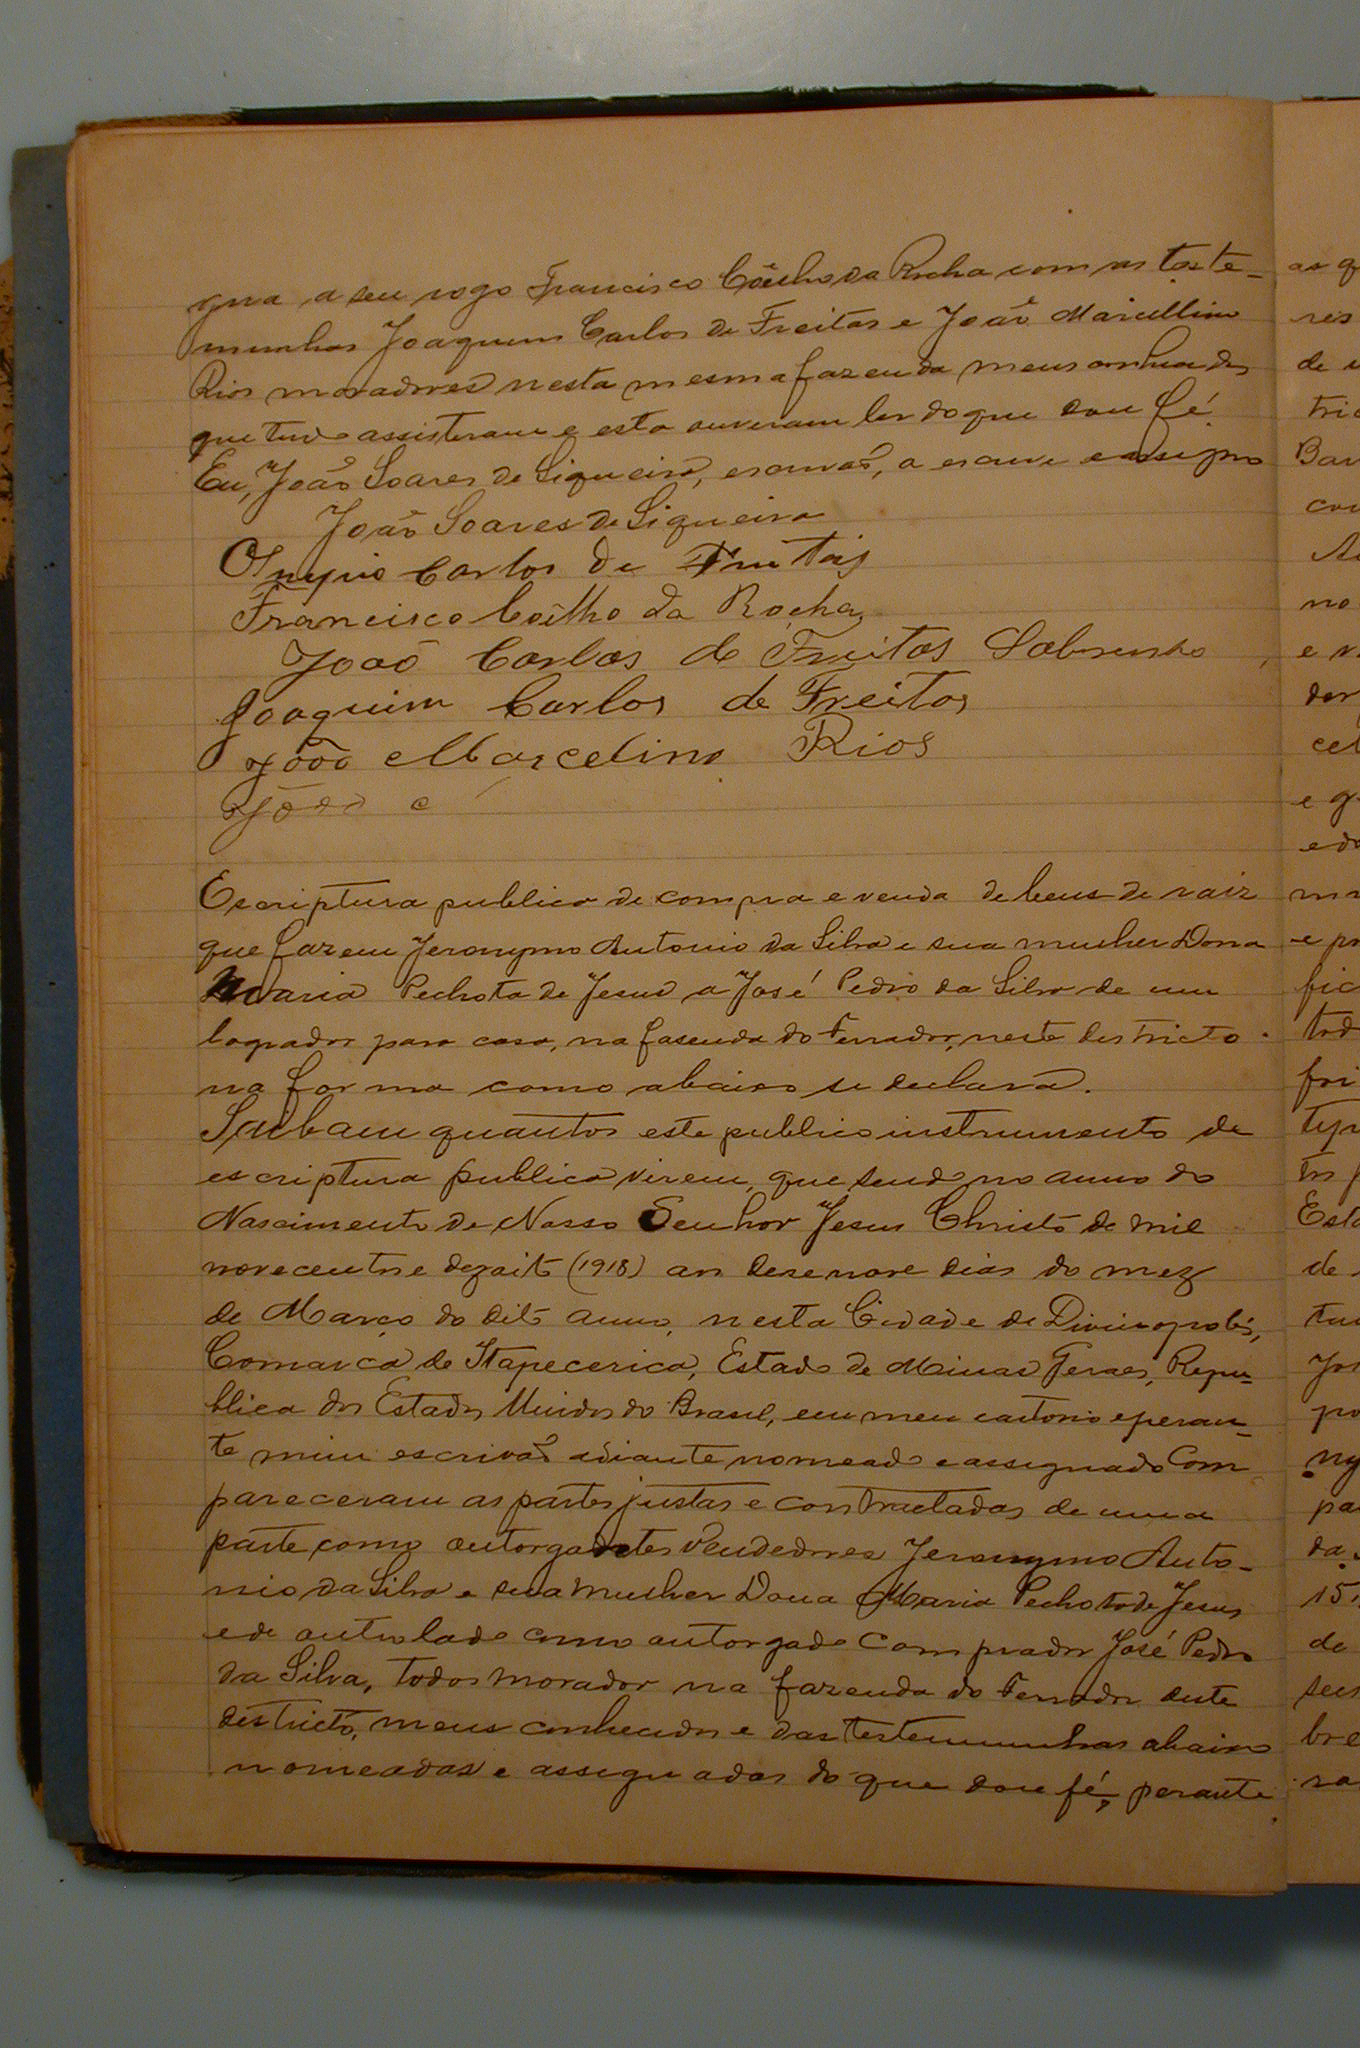 gna a seu rogo Francisco Coêlho da Rocha com as teste-
munhas Joaquim Carlos de Freitas e João Marcellino
Rios moradores nesta mesma fazenda meus conhecidos
que tudo assisteram e esta ouveram ler do que dou fé.
Eu, João Soares de Siqueira, escrivão, a escrevi e assigno
João Soares de Siqueira
Olnypio Carlos de Freitas
Francisco Coêlho da Rocha
João Carlos de Freitas Sobrinho
Joaquim Carlos de Freitas
João Marcelino Rios
João c
Escriptura publica de compra e venda de beus de raiz
que fazem Jeronymo Antonio da Silva e sua mulher Dona
Maria Pechota de Jesus a José Pedro da Silva de um
logrador para casa, na fasenda do Ferrador, neste destricto
na forma como abaixo se declara.
Saibam quantos este publico instrumento de
escriptura publica virem, que sendo no anno do
Nascimento de Nosso Senhor Jesus Christo de mil
novecentos e dezoito (1918) aos dezenove dias do mez
de Março do dito anno, nesta Cidade de Divinopolis,
Comarca de Itapecerica, Estado de Minas Geraes, Repu-
blica dos Estados Unidos do Brasil, em meu cartorio e peran-
te mim escrivão adiante nomeado e assignado Com
pareceram as partes justas e contractadas de uma
parte como outorgadotes Vendedores Jeronymo Anto-
nio da Silva e sua mulher Dona Maria Pechota de Jesus
e de outro lado como outorgado Comprador José Pedro
da Silva, todos morador na fazenda do Ferrador deste
destricto, meus conhecidos e das testemunhas abaixo
nomeadas e assignadas do que dou fé, perante